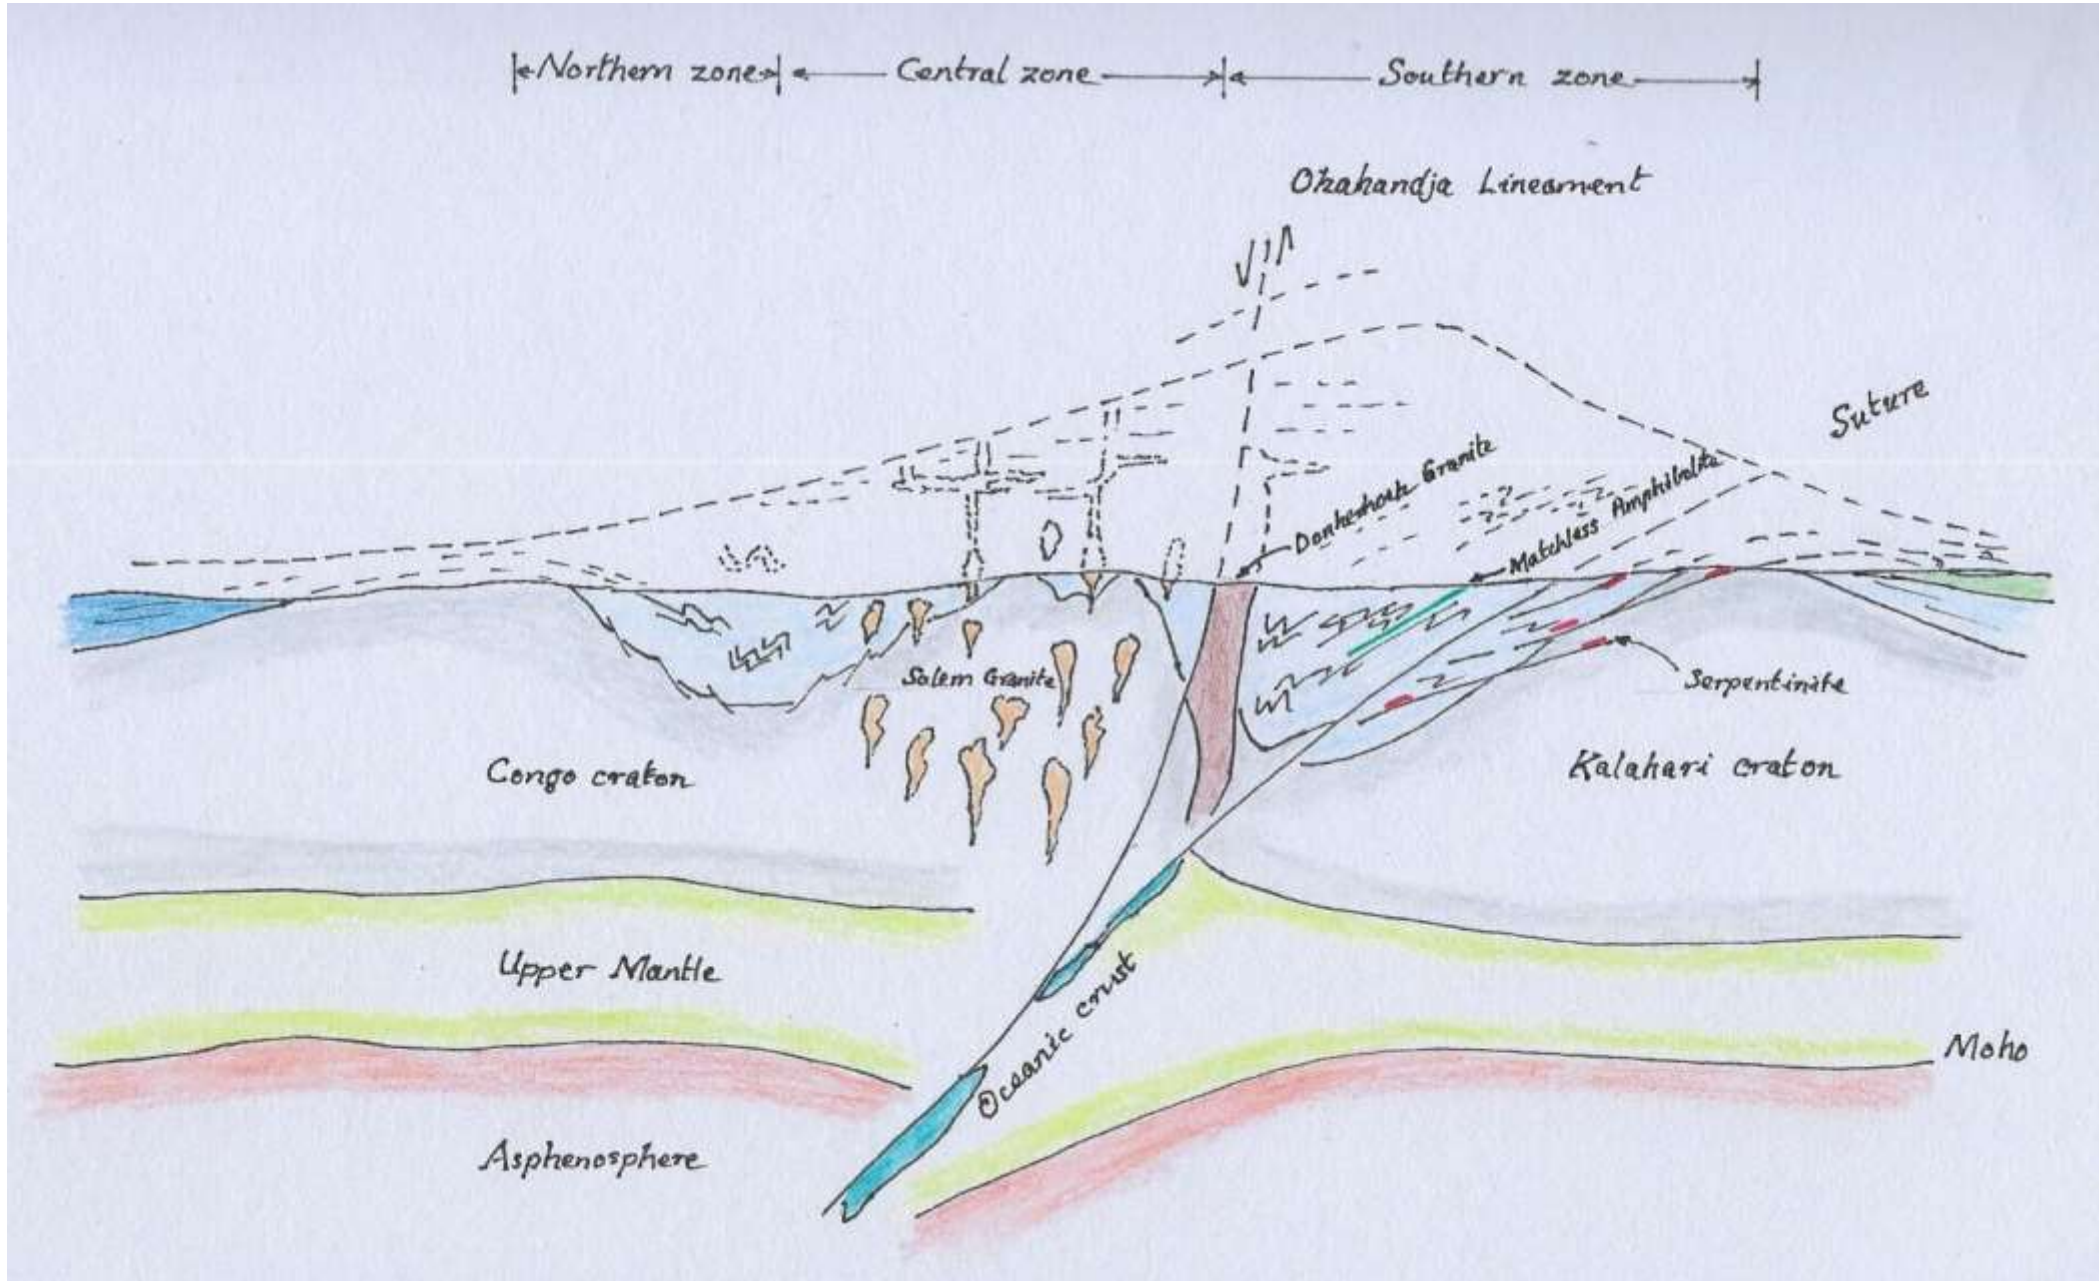 Northern zone
Central zone
Southern zone
Okahandja Lineament
Suture
Donkerhoek Granite
Matchless Amphibolite
Salem Granite
Serpentinite
Congo craton
Kalahari craton
Upper Mantle
Oceanic crust
Moho
Asphenosphere